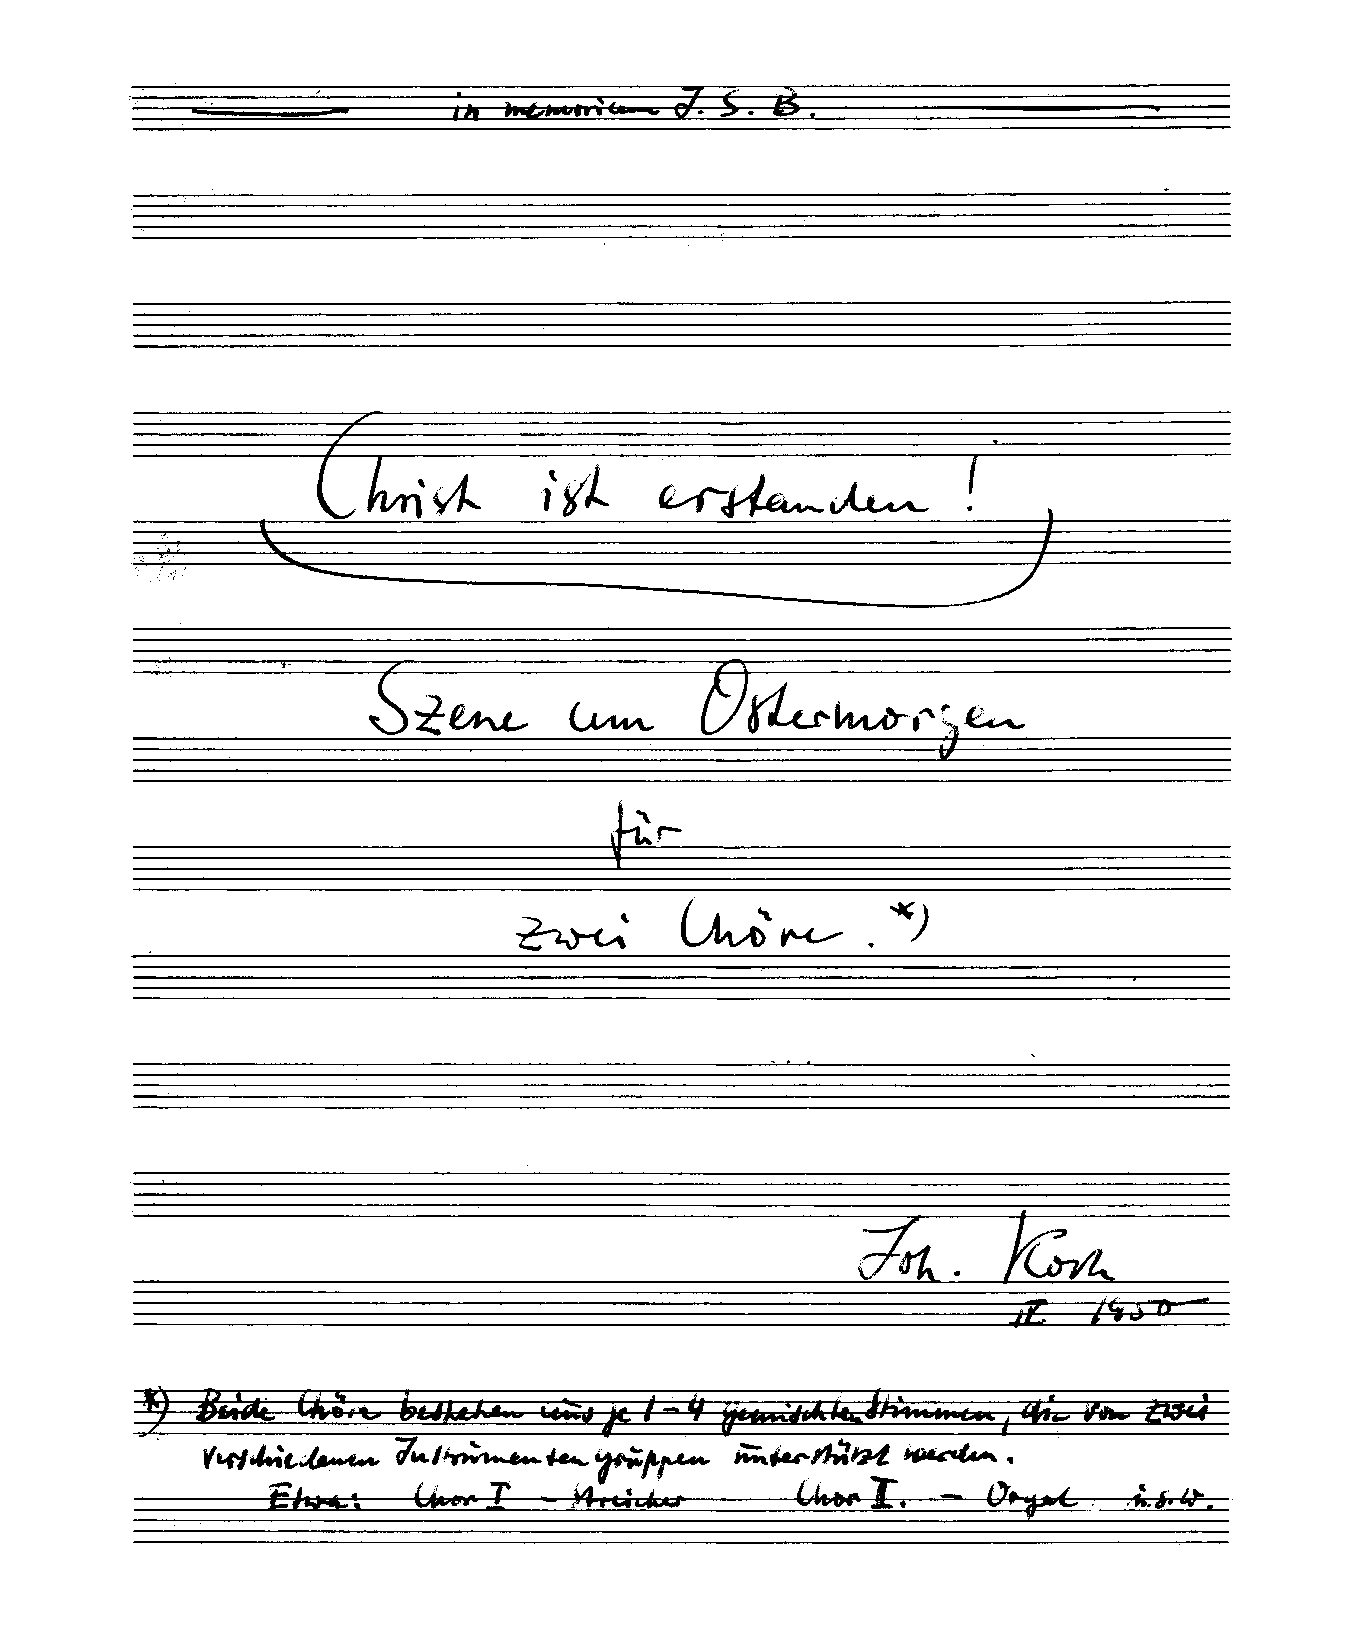 in memoriam J. S. B.
Christ ist erstanden!
Szene am Ostermorgen
für
zwei Chöre. *)
Joh. Koch
IV. 1950
*) Beide Chöre bestehen aus je 1-4 gemischten Stimmen, die von zwei
verschiedenen Instrumentengruppen unterstützt werden.
Etwa: Chor I - Streicher Chor II. - Orgel u.s.w.